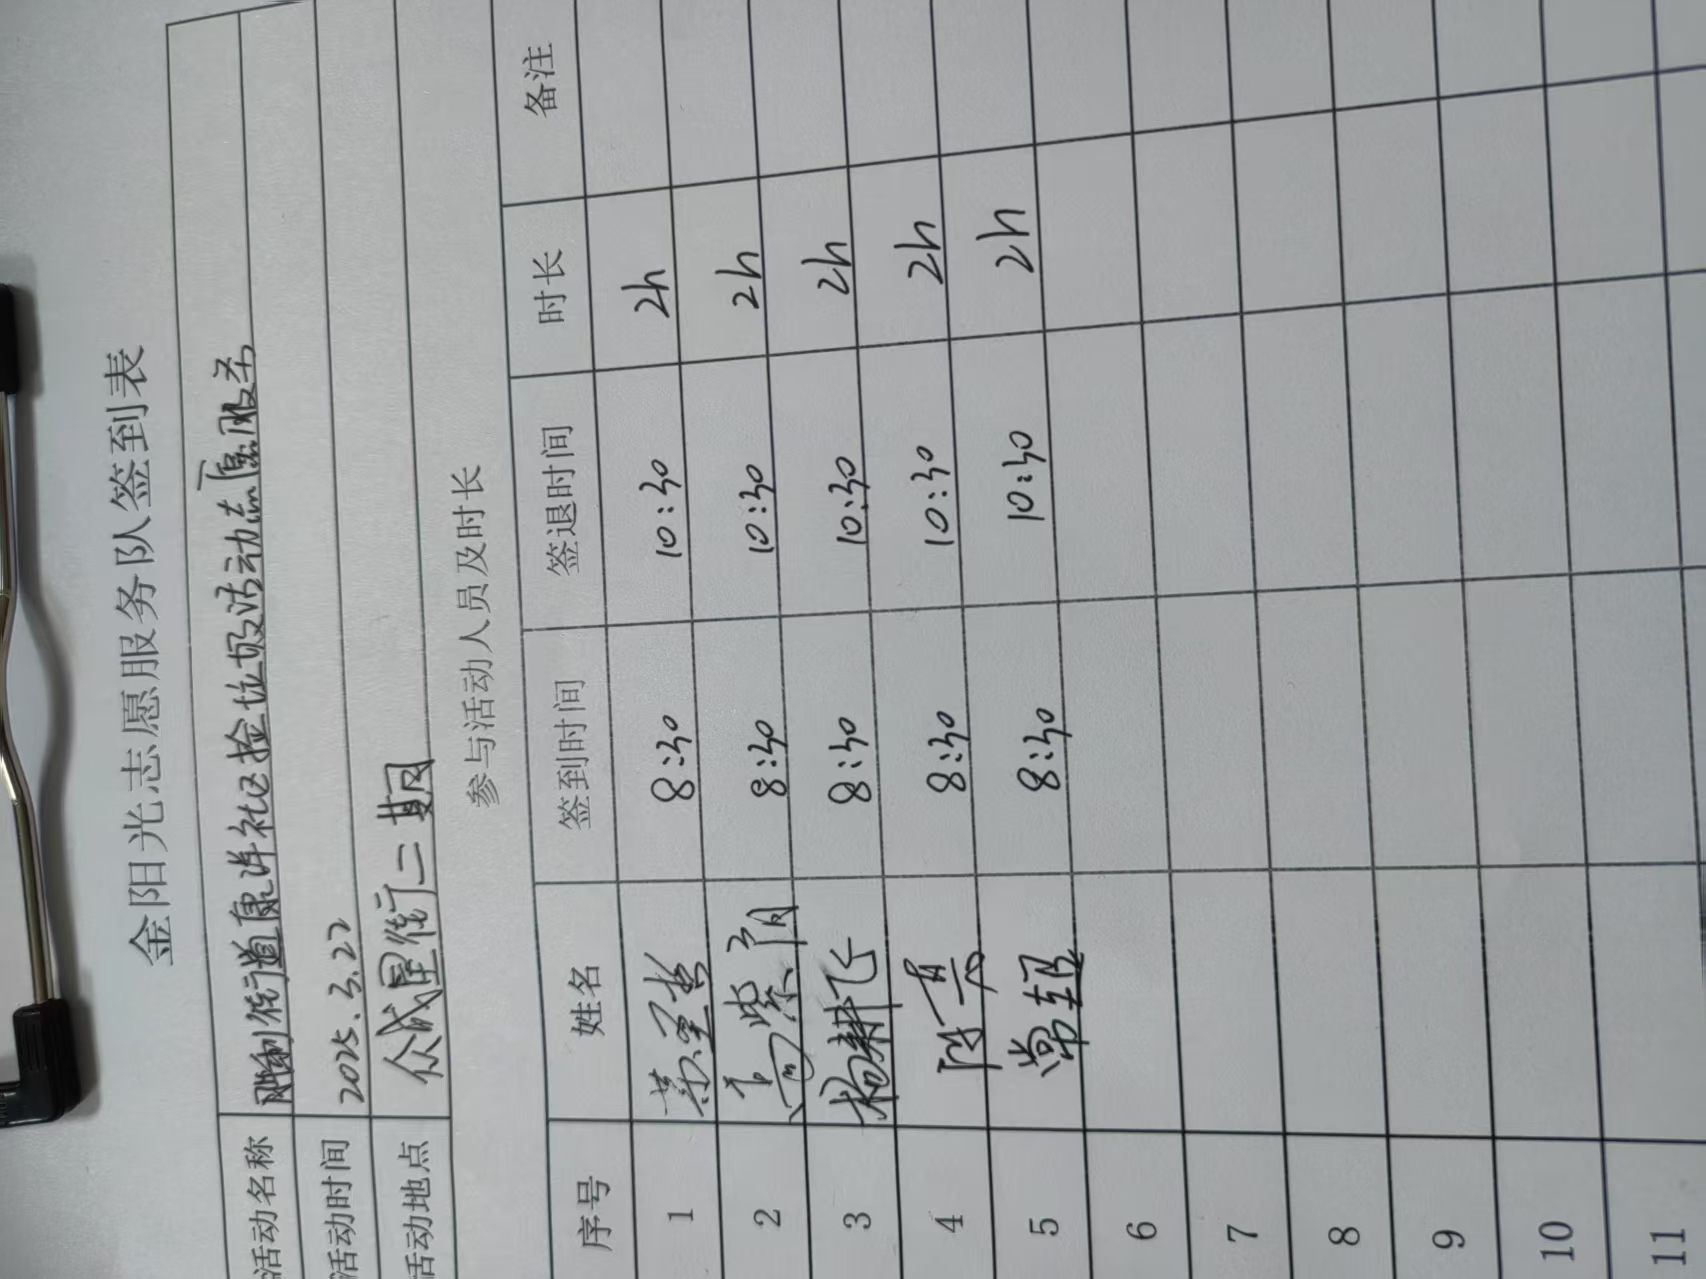 金阳光志愿服务队签到表
活动名称 胜利街道康洋社区捡垃圾活动志愿服务
活动时间 2025.3.22
活动地点 众成星街二期
参与活动人员及时长
序号 姓名 签到时间 签退时间 时长 备注
1 8:30 10:30 2h
2 高紫阳 8:30 10:30 2h
3 杨耕飞 8:30 10:30 2h
4 8:30 10:30 2h
5 8:30 10:30 2h
6
7
8
9
10
11